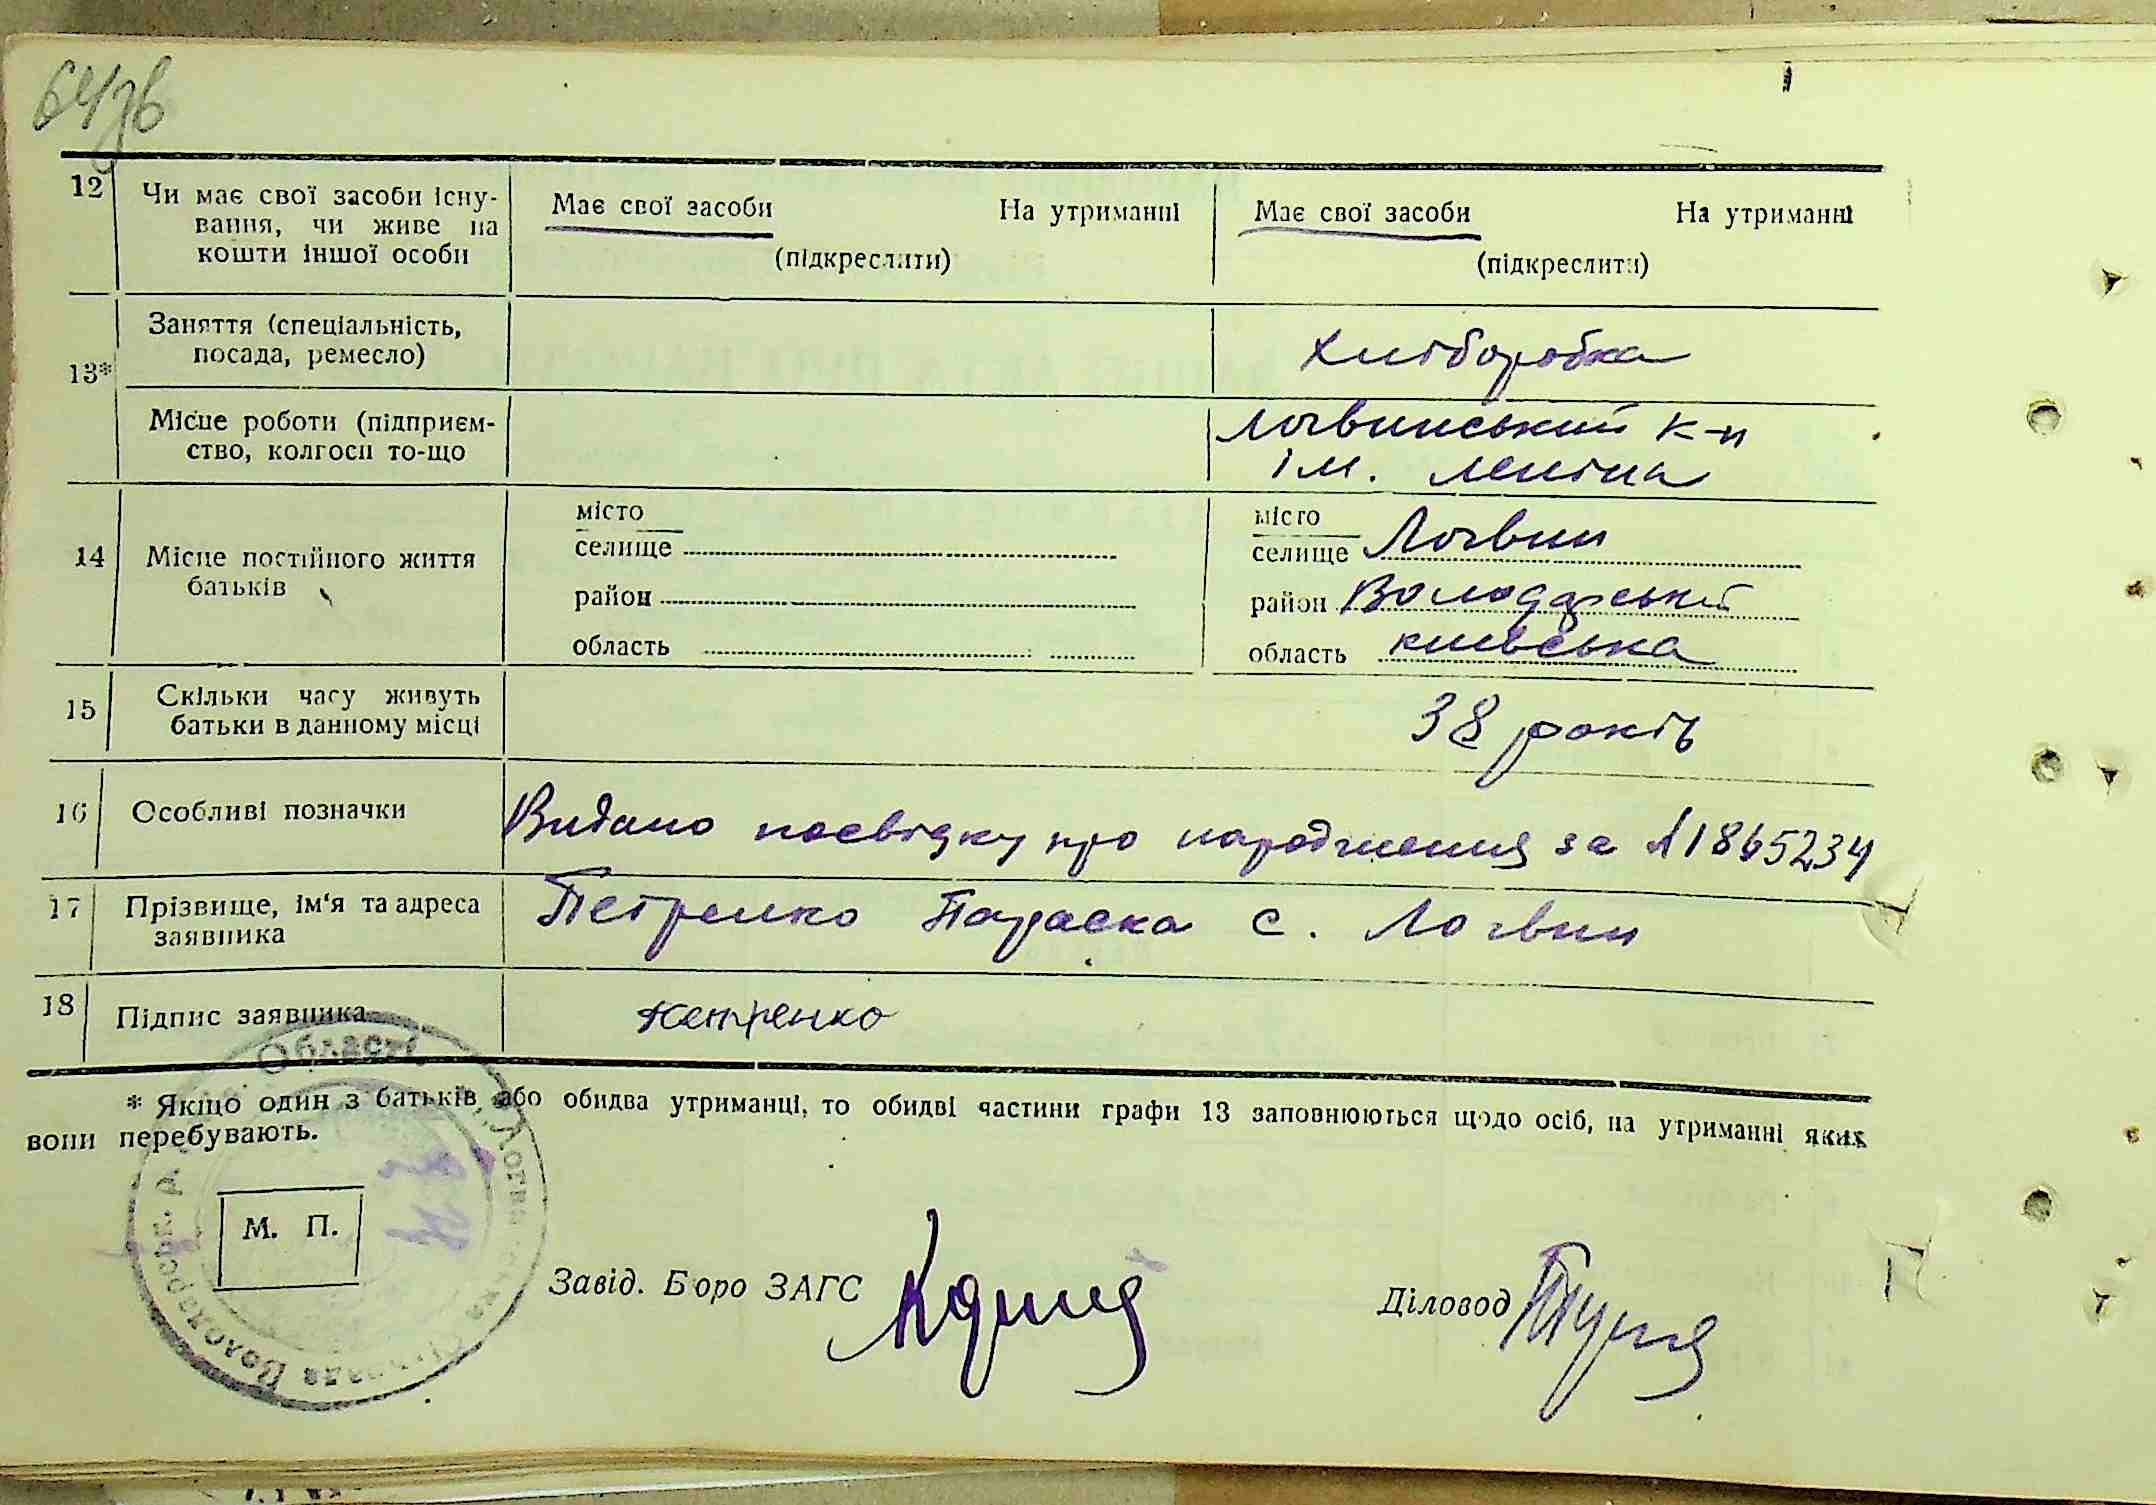 64зв
12 Чи має свої засоби існу-
вання, чи живе на
кошти іншої особи
Має свої засоби На утриманні
(підкреслити)
Має свої засоби На утриманні
(підкреслити)
13*
Заняття (спеціальність,
посада, ремесло)
хліборобка
Місце роботи (підприєм-
ство, колгосп то-що
Логвинський к-п
ім. Леніна
14 Місце постійного життя
батьків
місто
селище
район
область
місто
селище Логвин
район Володарський
область київська
15 Скільки часу живуть
батьки в данному місці
38 років
16 Особливі позначки
Видано посвідку про народження за № 1865234
17 Прізвище, ім'я та адреса
заявника
Петренко Параска с. Логвин
18 Підпис заявника
Петренко
* Якщо один з батьків, або обидва утриманці, то обидві частини графи 13 заповнюються щодо осіб, на утриманні яких
вони перебувають.
М. П.
Завід. Бюро ЗАГС
Діловод
Області